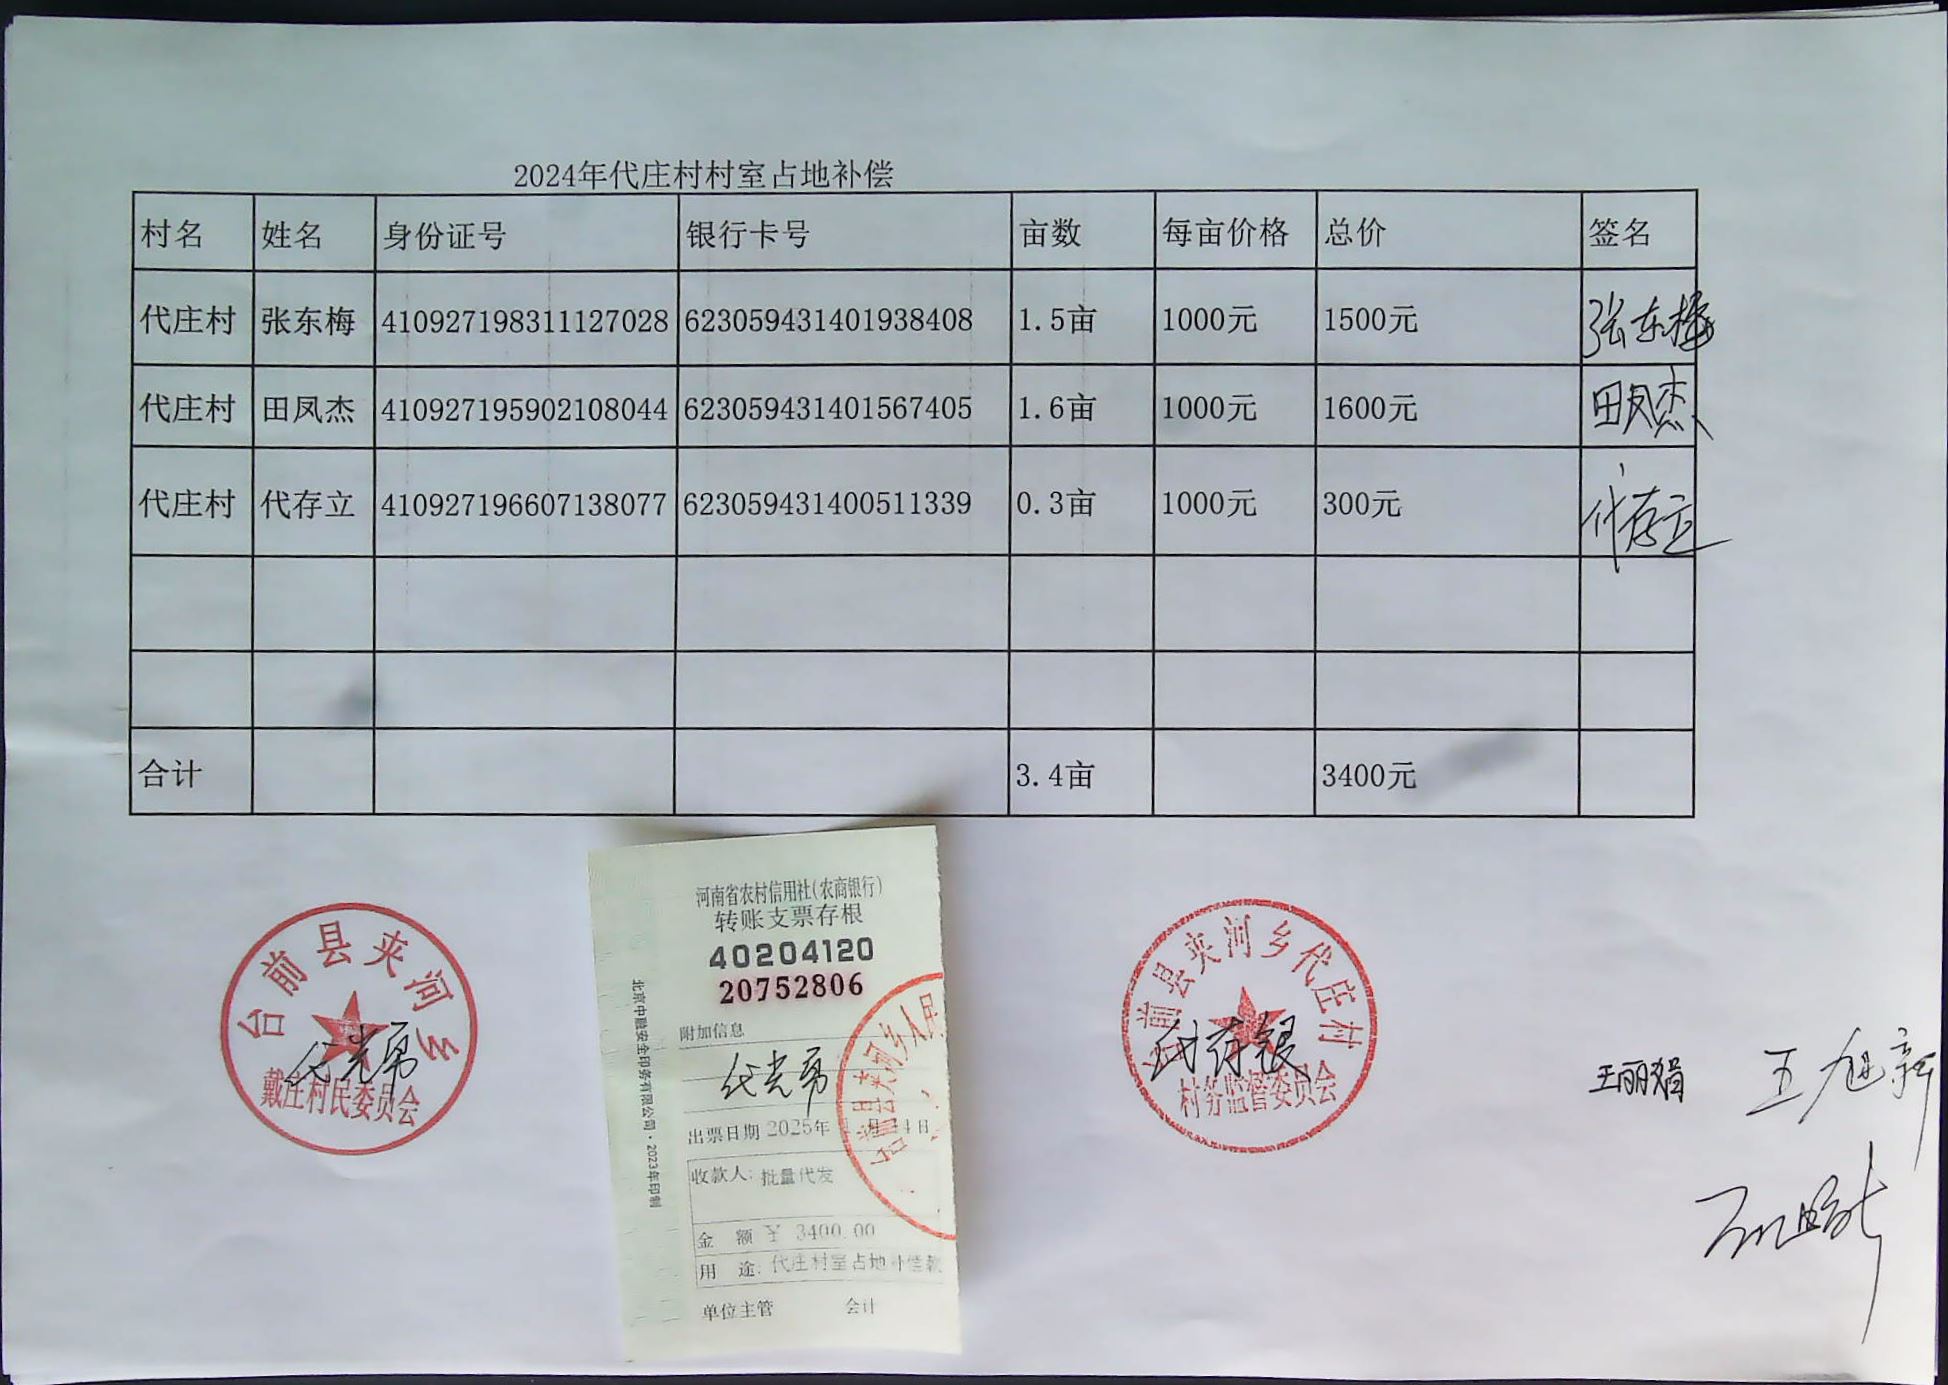 2024年代庄村村室占地补偿
村名 姓名 身份证号 银行卡号 亩数 每亩价格 总价 签名
代庄村 张东梅 410927198311127028 623059431401938408 1.5亩 1000元 1500元 张东梅
代庄村 田凤杰 410927195902108044 623059431401567405 1.6亩 1000元 1600元 田凤杰
代庄村 代存立 410927196607138077 623059431400511339 0.3亩 1000元 300元 代存立
合计 3.4亩 3400元
台前县夹河乡
戴庄村民委员会
代光勇
河南省农村信用社(农商银行)
转账支票存根
40204120
20752806
附加信息
代光勇
出票日期 2025年 月14日
收款人: 批量代发
金 额 ¥ 3400.00
用 途: 代庄村室占地补偿款
单位主管 会计
北京中融安全印务有限公司·2023年印制
台前县夹河乡人民
台前县夹河乡代庄村
村务监督委员会
代存银
王丽娟
王旭新